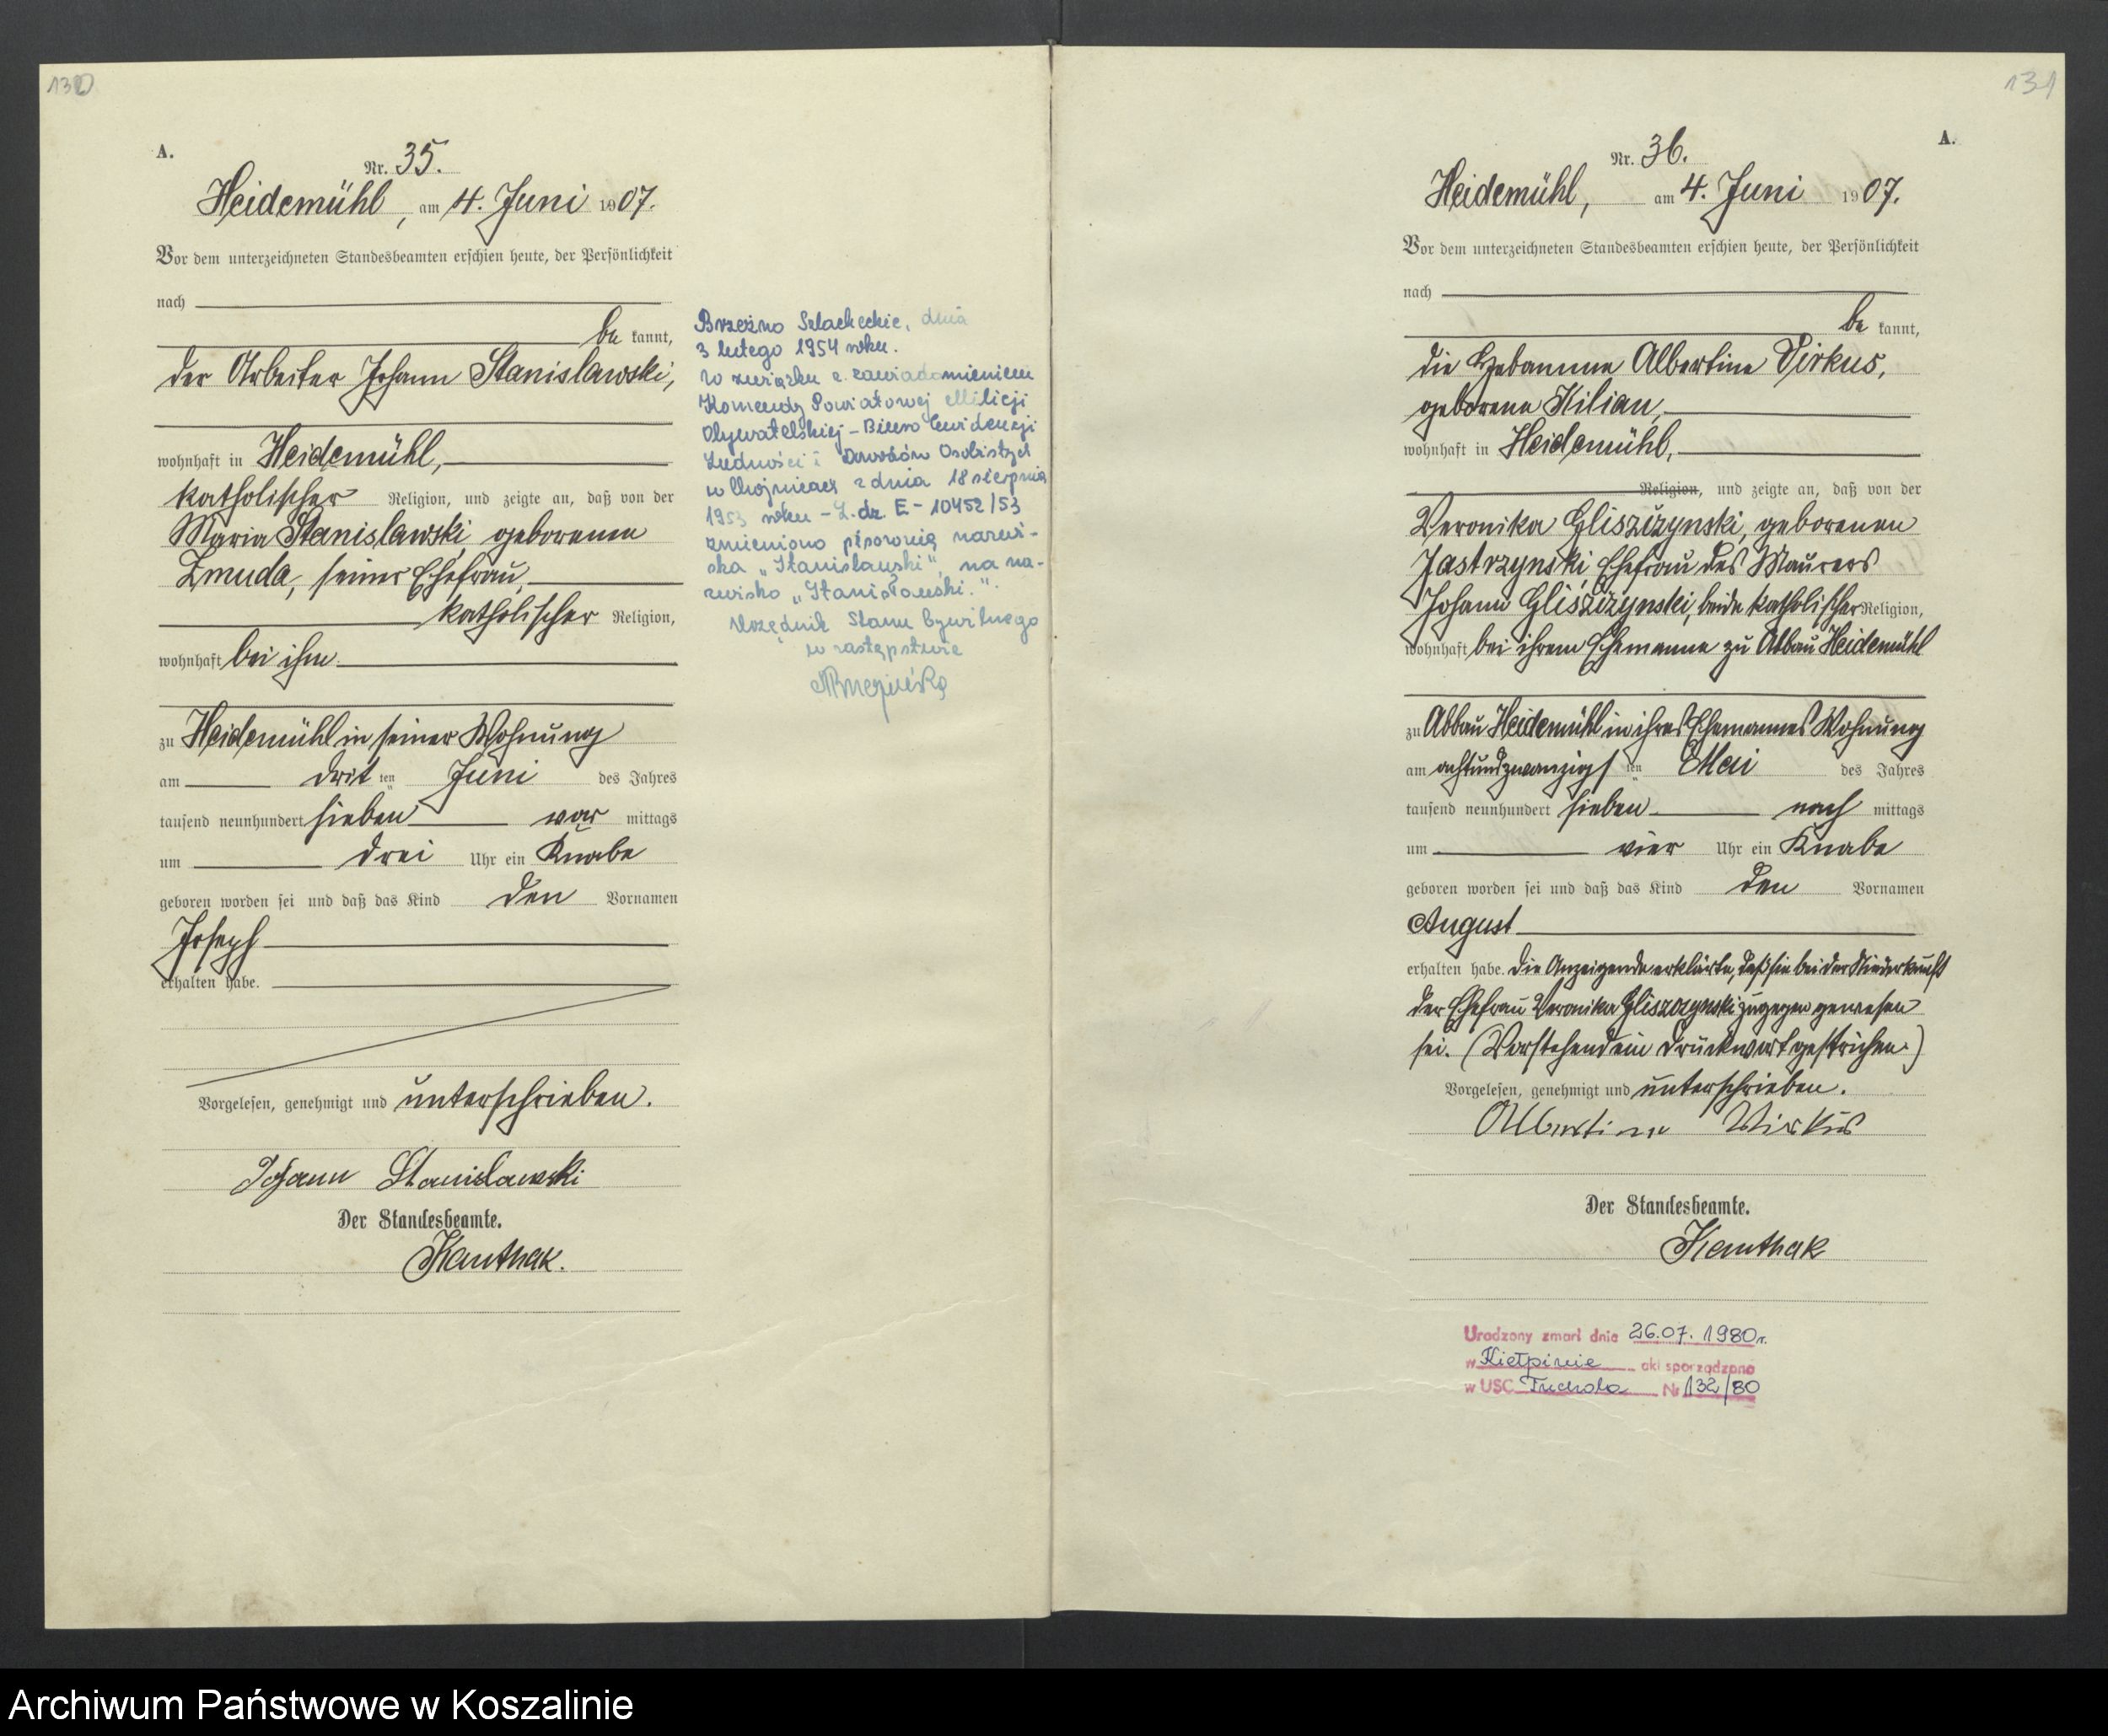 130
A.
Nr. 35.
Heidemühl, am 4. Juni 1907.
Vor dem unterzeichneten Standesbeamten erschien heute, der Persönlichkeit
nach
be kannt,
der Arbeiter Johann Stanislawski,
wohnhaft in Heidemühl,
katholischer Religion, und zeigte an, daß von der
Maria Stanislawski, geborenen
Zmuda, seiner Ehefrau,
katholischer Religion,
wohnhaft bei ihm
zu Heidemühl in seiner Wohnung
am drit ten Juni des Jahres
tausend neunhundert sieben vor mittags
um drei Uhr ein Knabe
geboren worden sei und daß das Kind den Vornamen
Joseph
erhalten habe.
Vorgelesen, genehmigt und unterschrieben.
Johann Stanislawski
Der Standesbeamte.
Kanthak.
Brzeźno Szlacheckie, dnia
3 lutego 1954 roku.
W związku z zawiadomieniem
Komendy Powiatowej Milicji
Obywatelskiej – Biuro Ewidencji
Ludności i Dowodów Osobistych
w Chojnicach z dnia 18 sierpnia
1953 roku – L. dz. E – 10452/53
zmieniono pisownię nazwi-
ska „Stanislawski" na na-
zwisko „Stanisławski."
Urzędnik Stanu Cywilnego
w zastępstwie
131
A.
Nr. 36.
Heidemühl, am 4. Juni 1907.
Vor dem unterzeichneten Standesbeamten erschien heute, der Persönlichkeit
nach
be kannt,
die Hebamme Albertine Virkus,
geborene Kilian,
wohnhaft in Heidemühl,
Religion, und zeigte an, daß von der
Veronika Gliszczynski, geborenen
Jastrzynski, Ehefrau des Maurers
Johann Gliszczynski, beide katholischer Religion,
wohnhaft bei ihrem Ehemanne zu Abbau Heidemühl
zu Abbau Heidemühl in ihres Ehemannes Wohnung
am achtundzwanzigs ten Mai des Jahres
tausend neunhundert sieben nach mittags
um vier Uhr ein Knabe
geboren worden sei und daß das Kind den Vornamen
August
erhalten habe. Die Anzeigende erklärte, daß sie bei der Niederkunft
der Ehefrau Veronika Gliszczynski zugegen gewesen
sei. (Vorstehend ein Druckwort gestrichen.)
Vorgelesen, genehmigt und unterschrieben.
Albertine Wirkus
Der Standesbeamte.
Kanthak
Urodzony zmarł dnia 26.07.1980 r.
w Kiełpinie akt sporządzono
w USC Tuchola Nr 132/80
Archiwum Państwowe w Koszalinie